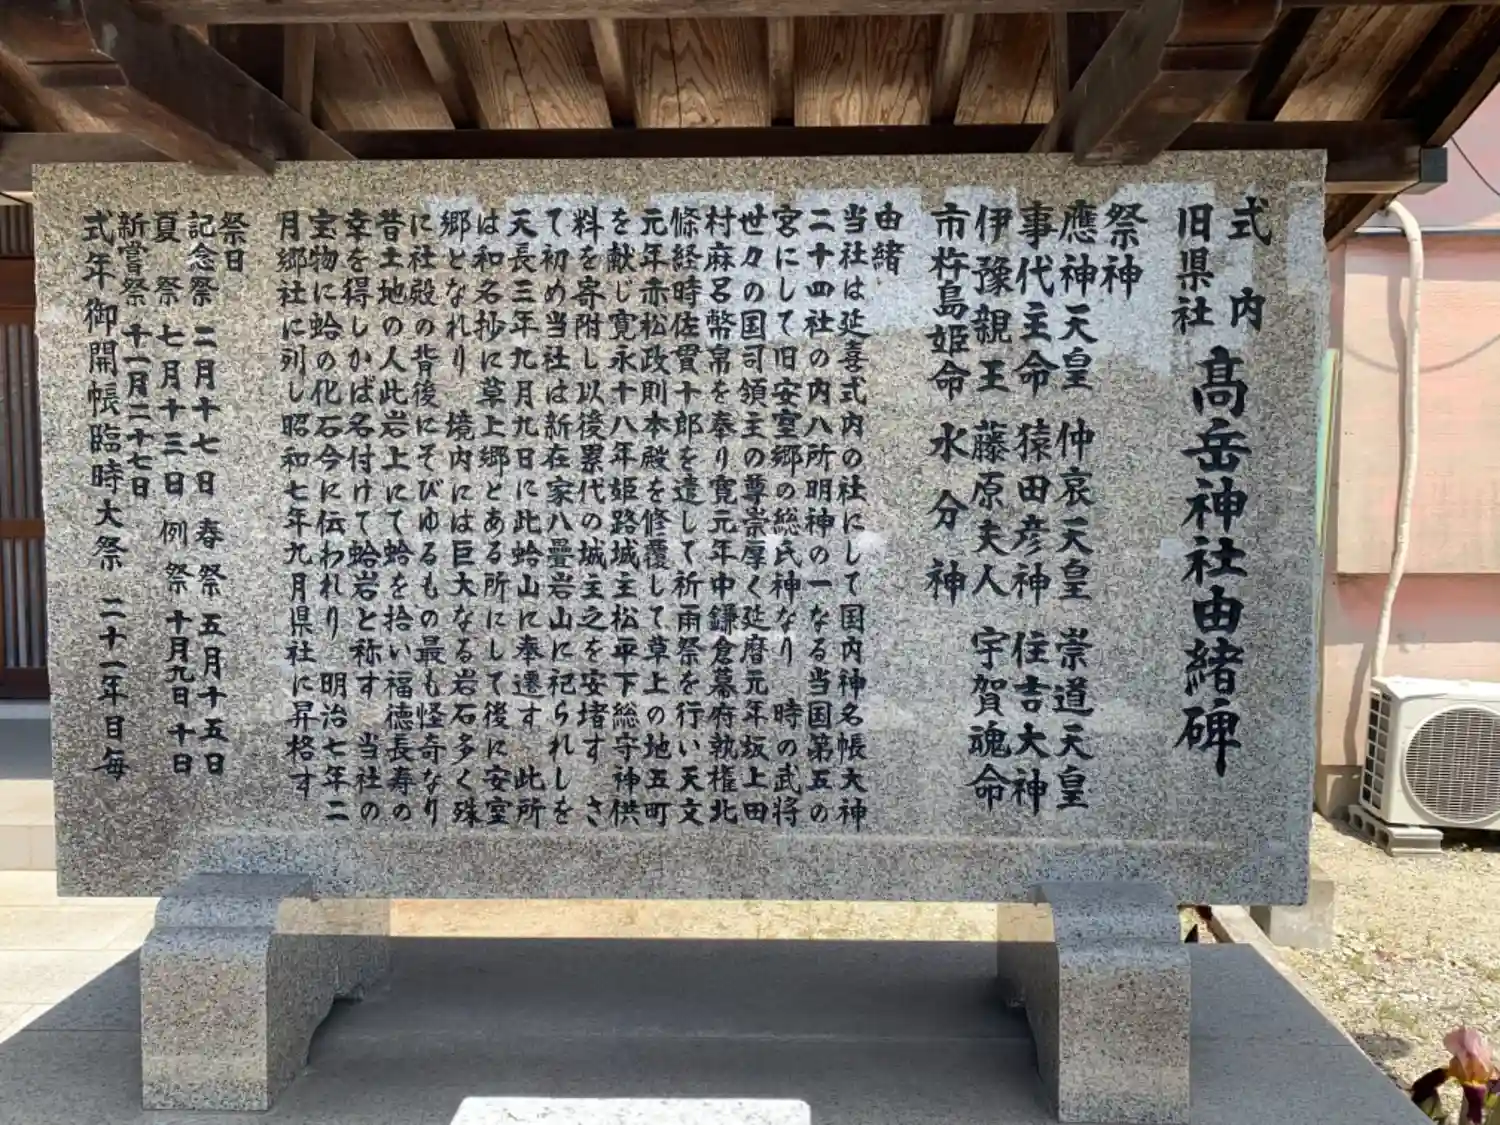 式内
旧県社
髙岳神社由緒碑
祭神
應神天皇 仲哀天皇 崇道天皇
事代主命 猿田彦神 住吉大神
伊豫親王 藤原夫人 宇賀魂命
市杵島姫命 水分神
由緒
当社は延喜式内の社にして国内神名帳大神
二十四社の内八所明神の一なる当国第五の
宮にして旧安室郷の総氏神なり 時の武将
世々の国司領主の尊崇厚く延暦元年坂上田
村麻呂幣帛を奉り寛元年中鎌倉幕府執権北
條経時佐貿十郎を遣して祈雨祭を行い天文
元年赤松政則本殿を修覆して草上の地五町
を献じ寛永十八年姫路城主松平下総守神供
料を寄附し以後累代の城主之を安堵す さ
て初め当社は新在家八疊岩山に祀られしを
天長三年九月九日に此蛤山に奉遷す 此所
は和名抄に草上郷とある所にして後に安室
郷となれり 境内には巨大なる岩石多く殊
に社殿の背後にそびゆるもの最も怪奇なり
昔土地の人此岩上にて蛤を拾い福徳長寿の
幸を得しかば名付けて蛤岩と称す 当社の
宝物に蛤の化石今に伝われり 明治七年二
月郷社に列し昭和七年九月県社に昇格す
祭日
記念祭 二月十七日 春祭 五月十五日
夏祭 七月十三日 例祭 十月九日 十日
新嘗祭 十一月二十七日
式年御開帳臨時大祭 二十一年日毎